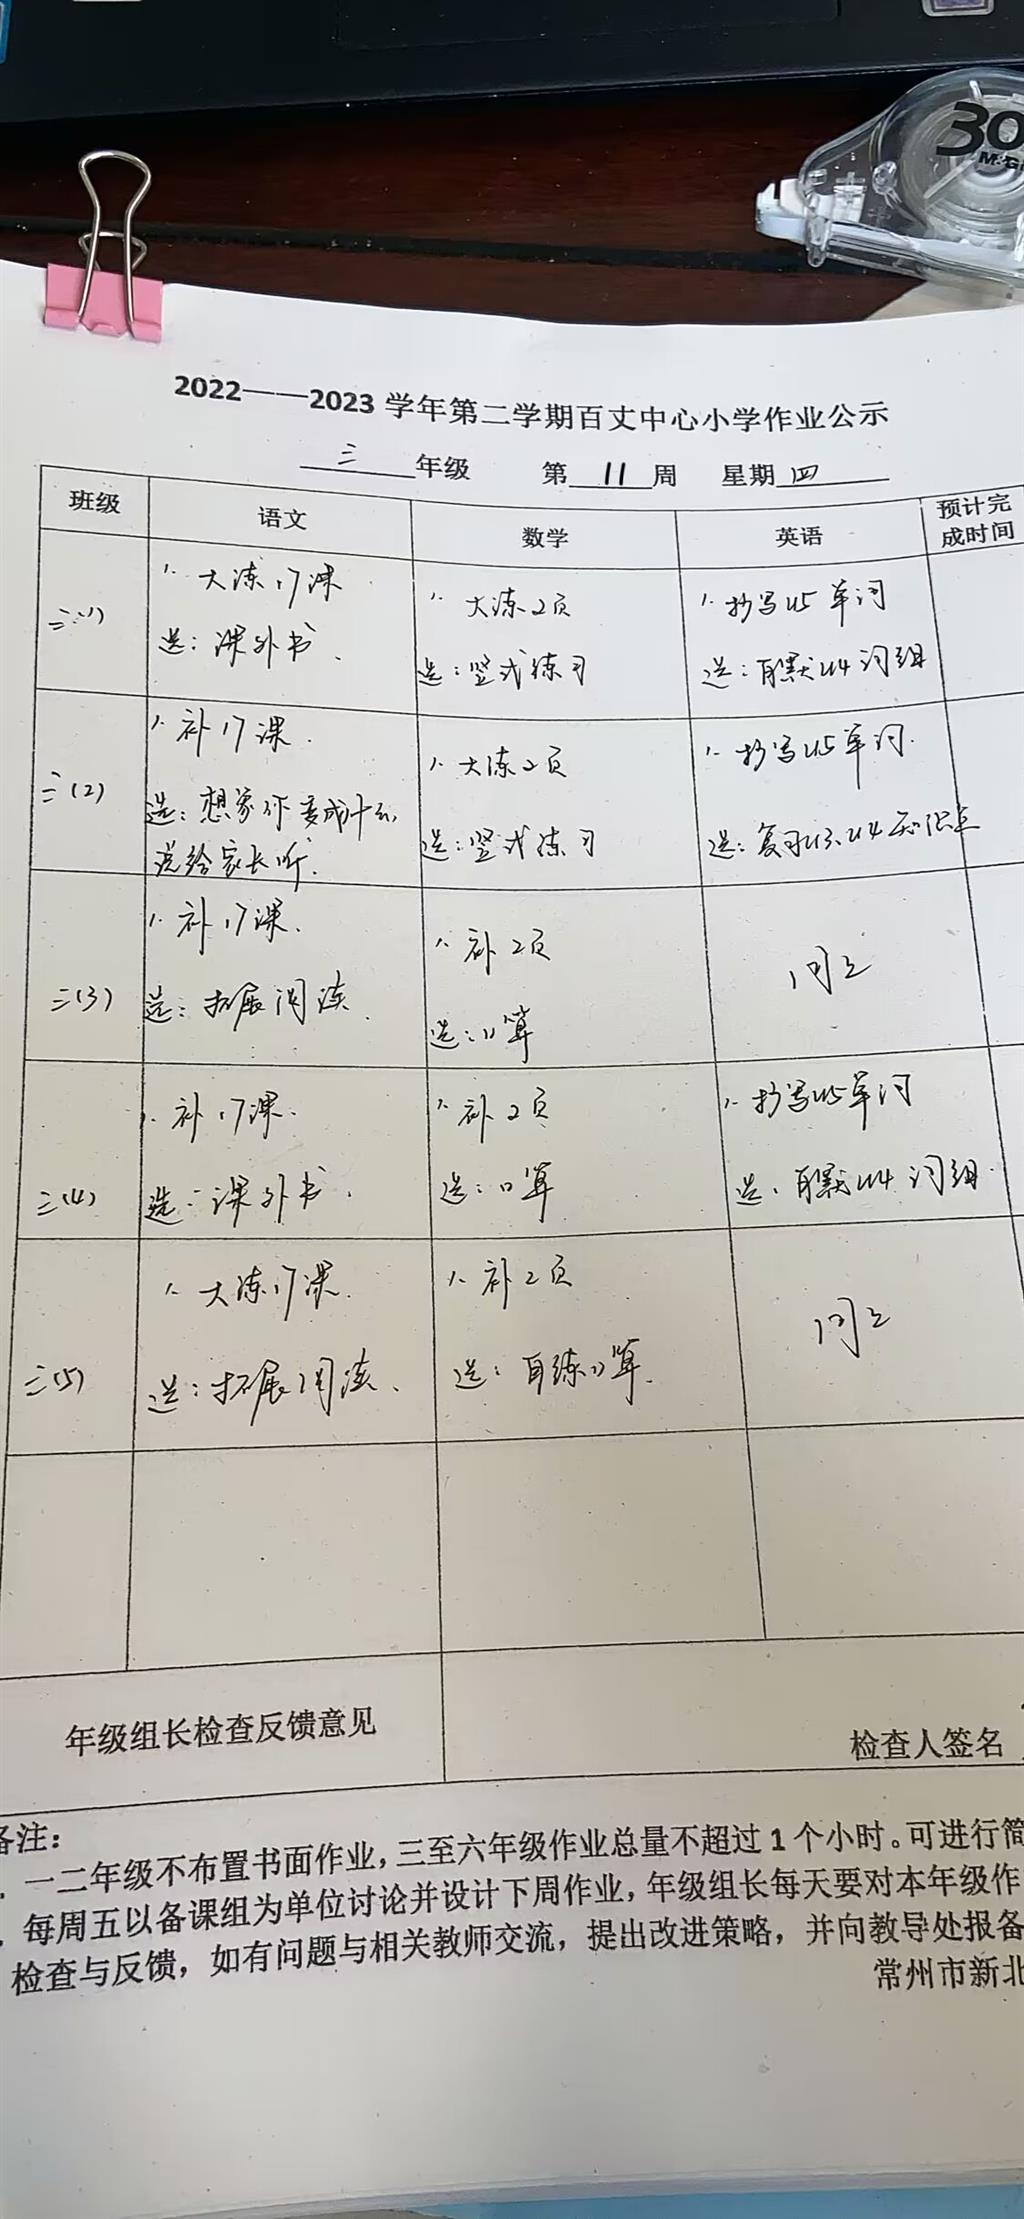 30
M·G
2022——2023学年第二学期百丈中心小学作业公示
三 年级 第 11 周 星期 四
班级 语文 数学 英语 预计完成时间
三(1)
1. 大练17课
选：课外书.
1. 大练2页
选：竖式练习
1. 抄写U5单词
选：自默U4词组
三(2)
1. 补17课.
选：想象你变成什么
说给家长听.
1. 大练2页
选：竖式练习
1. 抄写U5单词.
选：复习U3、U4知识点
三(3)
1. 补17课.
选：拓展阅读.
1. 补2页
选：口算
同上
三(4)
1. 补17课.
选：课外书.
1. 补2页
选：口算
1. 抄写U5单词
选：自默U4词组.
三(5)
1. 大练17课.
选：拓展阅读.
1. 补2页
选：自练口算.
同上
年级组长检查反馈意见
检查人签名
备注：
一二年级不布置书面作业，三至六年级作业总量不超过1个小时。可进行简
每周五以备课组为单位讨论并设计下周作业，年级组长每天要对本年级作
检查与反馈，如有问题与相关教师交流，提出改进策略，并向教导处报备
常州市新北